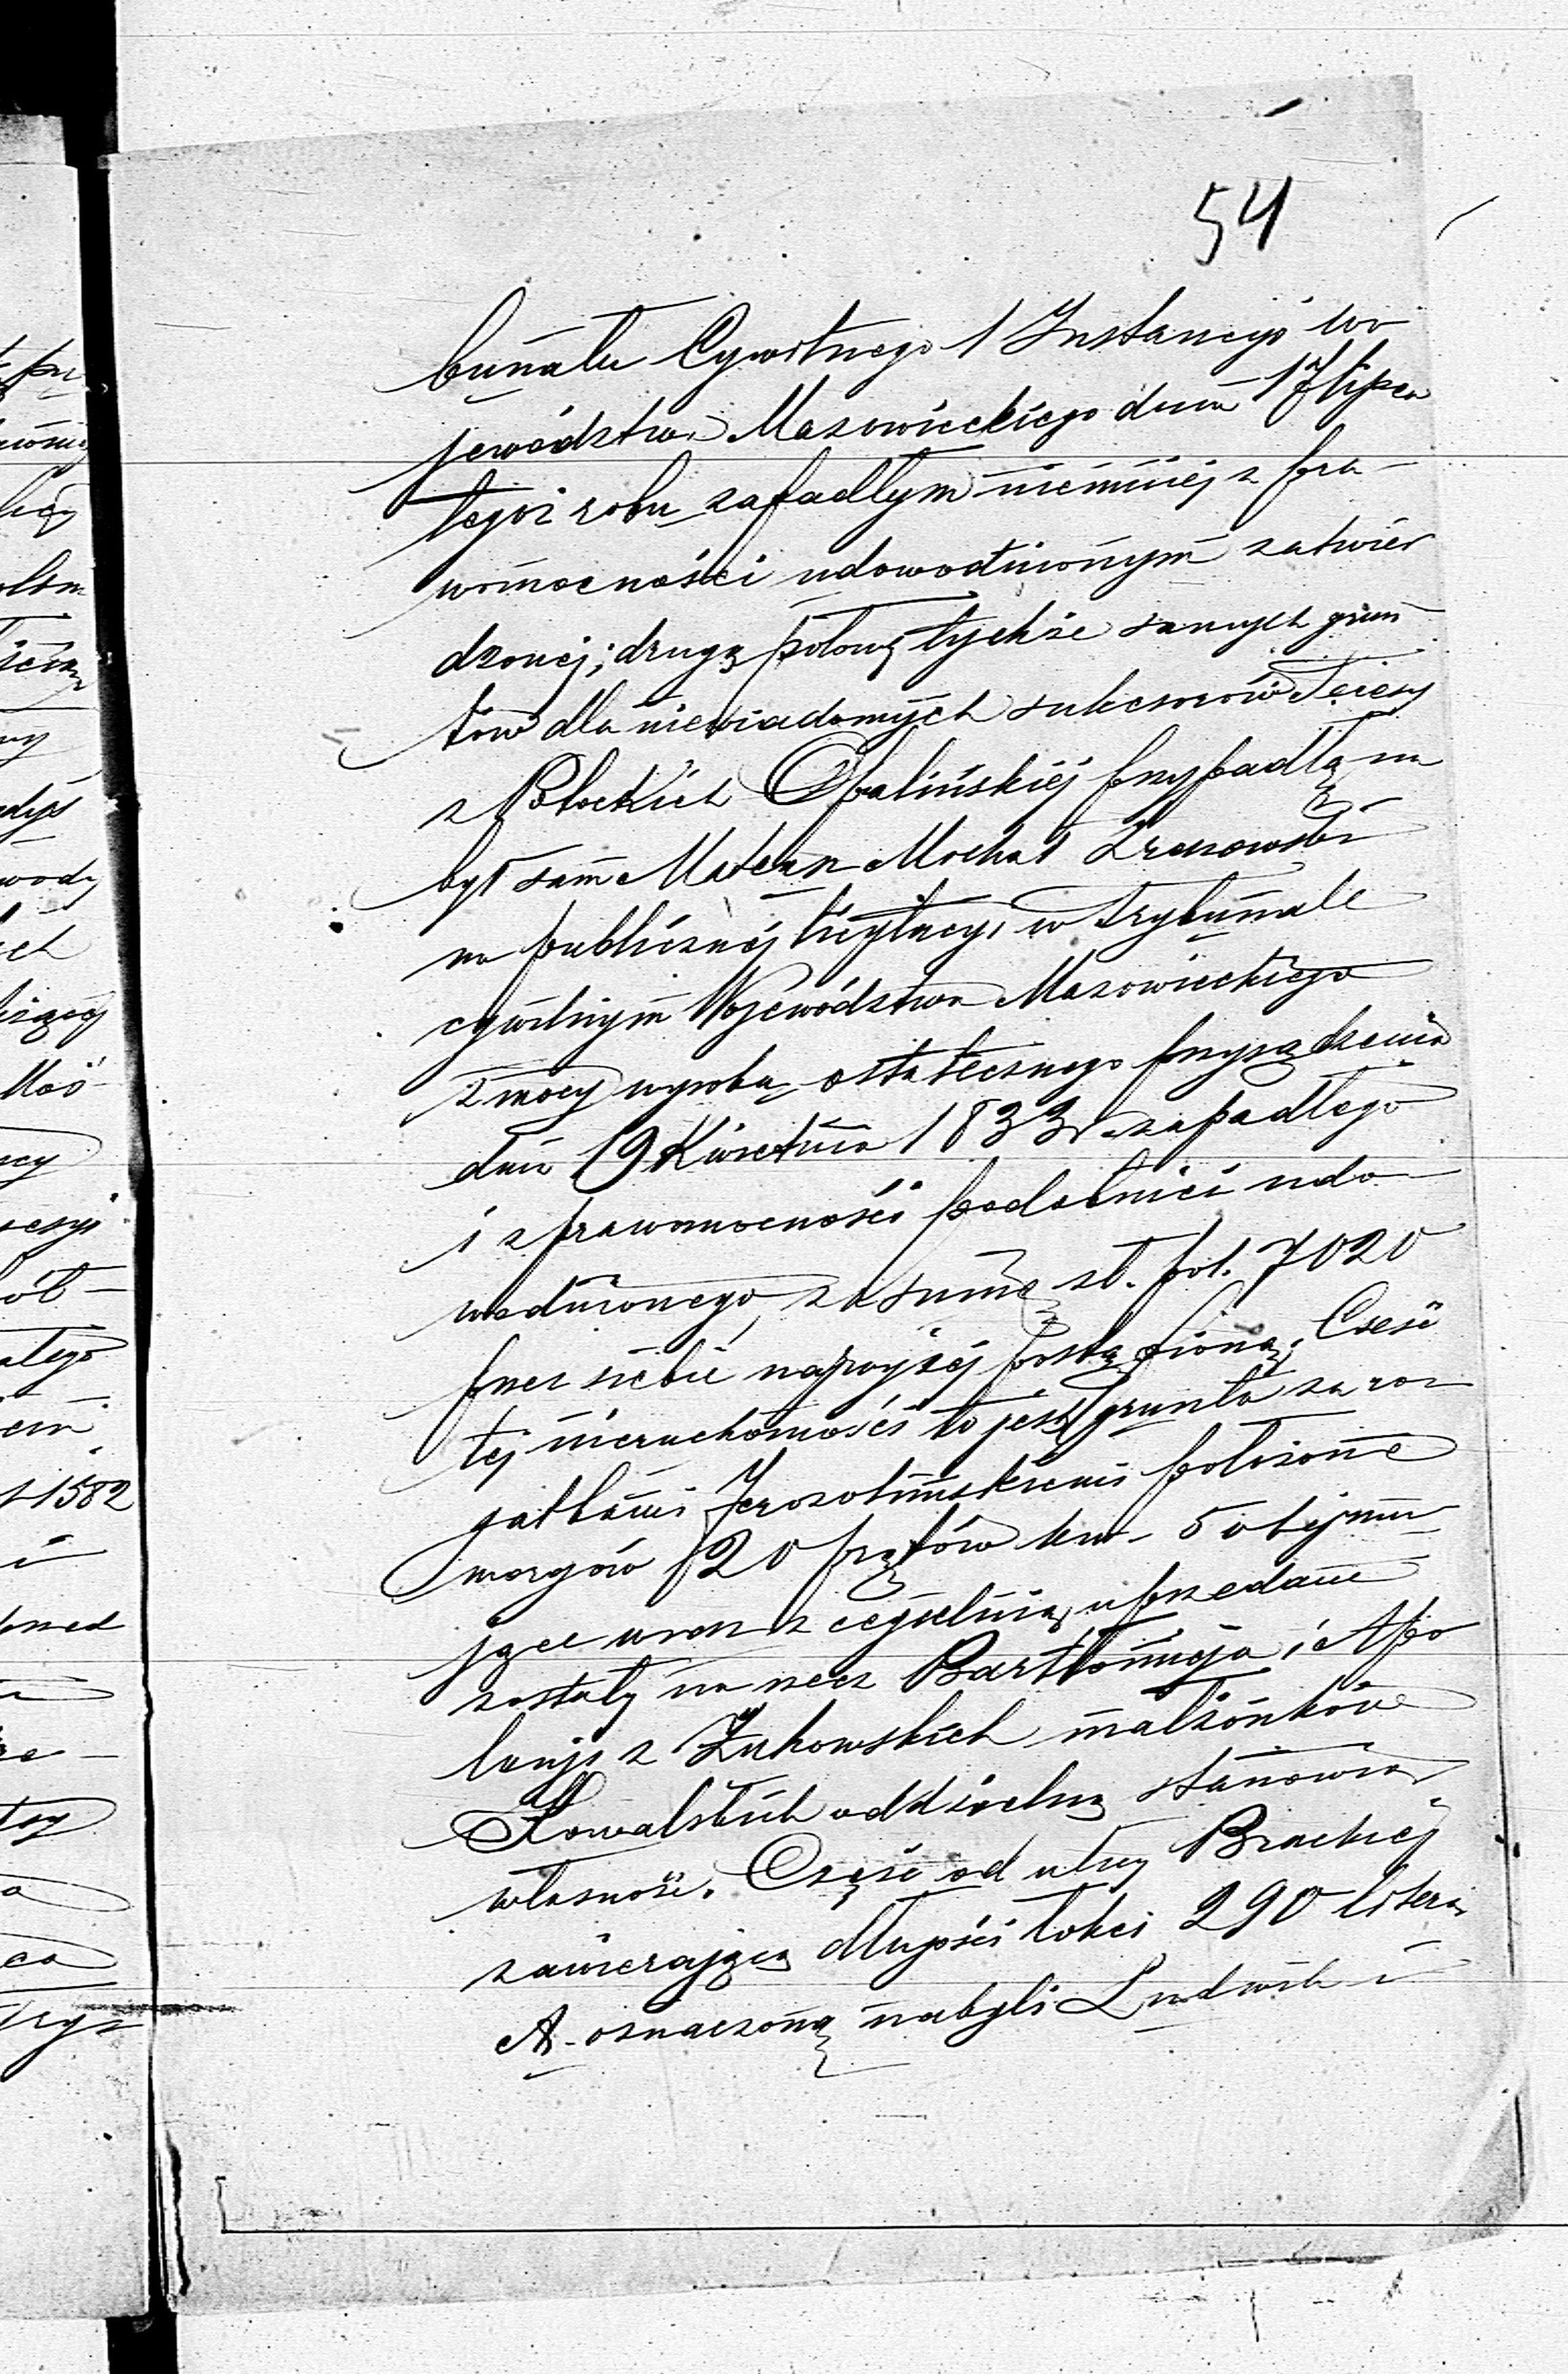 54
bunału Cywilnego 1 Instancyi wo
jewództwa Mazowieckiego dnia 17 lipca
tegoż roku zapadłym niemniej z pra-
womocności udowodnionym zatwier
dzonej; drugą połowę tychże samych grun
tów dla niewiadomych sukcesorów Teresy
z Potockich Opalińskiej przypadłą na
był sam Mateusz Michał
na publicznéj licytacyi w trybunale
cywilnym Województwa Mazowieckiego
z mocy wyroku ostatecznego przysądzenia
dnia 19 Kwietnia 1833 r. zapadłego
i z prawomocności podobnież udo
wodnionego, za summę zł. pol. 7020
przez siebie najwyżej postąpioną. Część
tej nieruchomości to jest grunta za ro-
gatkami Jerozolimskiemi położone
morgów 20 prętów kw. 5 obejmu
jące wraz z cegielnią, uprzedane
zostały na rzecz Bartłomieja i Apo
lonji z Żukowskich małżonków
Kowalskich oddzielną stanowią
własność. Część od ulicy Brackiej
zawierającą długości łokci 290 literą
A. oznaczoną nabyli Ludwik i